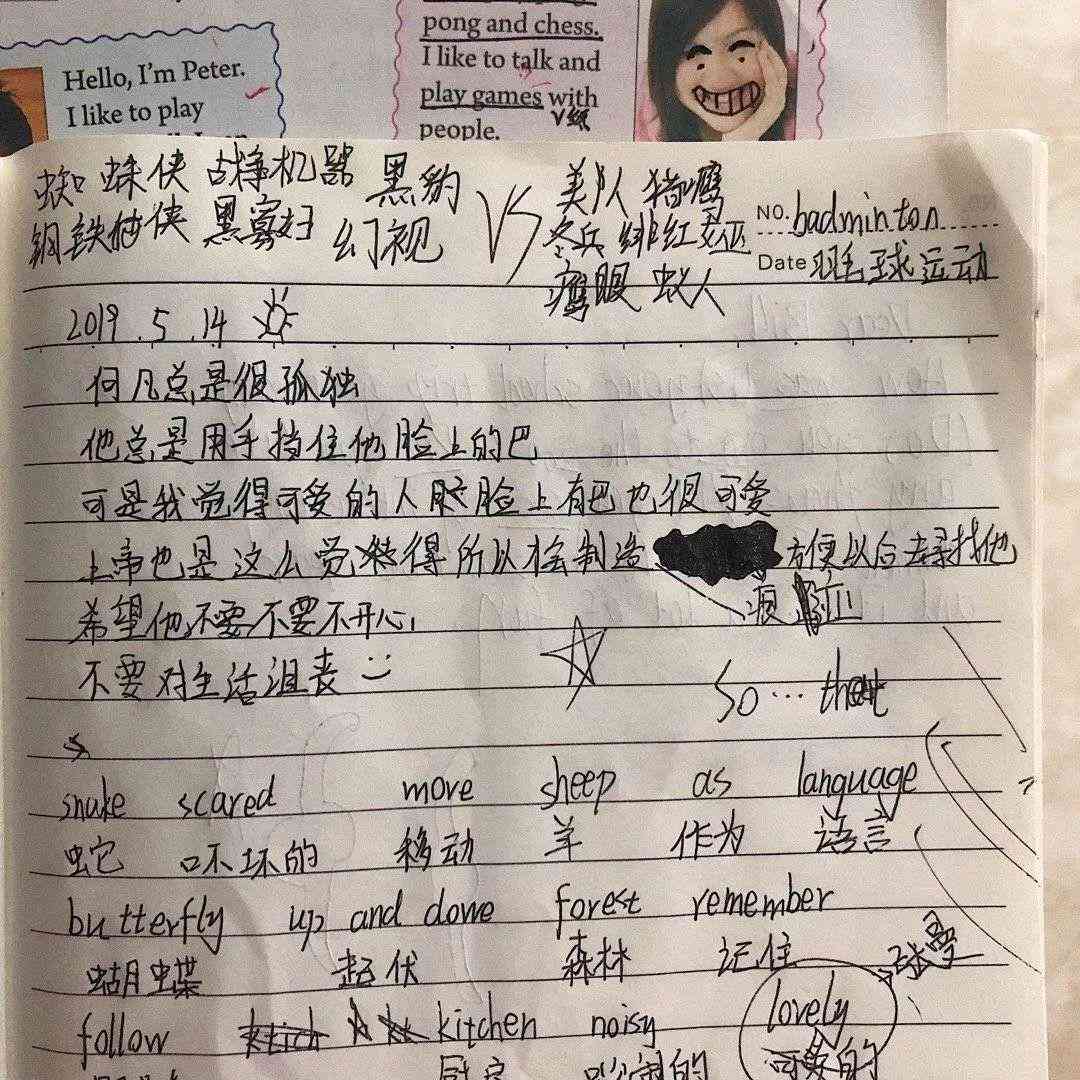 Hello, I'm Peter.
I like to play
pong and chess.
I like to talk and
play games with
people.
蜘蛛侠 战争机器 黑豹
钢铁侠 黑寡妇 幻视
VS
美队 猎鹰
冬兵 绯红女巫
鹰眼 蚁人
NO. badminton
Date 羽毛球运动
2019.5.14
何凡总是很孤独
他总是用手挡住他脸上的巴
可是我觉得可爱的人 脸上有巴也很可爱
上帝也是这么觉得所以才会制造 方便以后去寻找他
希望他不要不要不开心
不要对生活沮丧
So… that
snake scared move sheep as language
蛇 吓坏的 移动 羊 作为 语言
butterfly up and dowe forest remember
蝴蝶 起伏 森林 记住
follow kitchen noisy lovely
厨房 吵闹的 可爱的